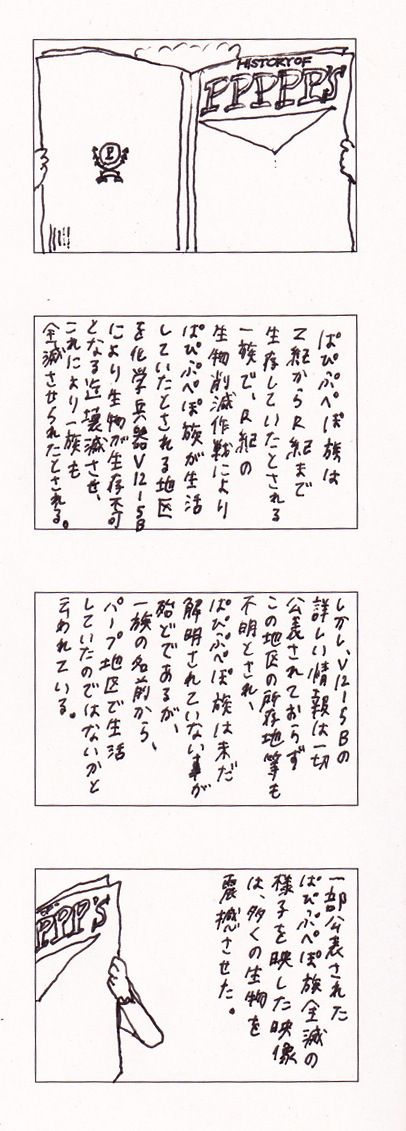 HISTORY OF
PPPPP'S
P
ぱぴぷぺぽ族は
Z紀からR紀まで
生存していたとされる
一族で、R紀の
生物削減作戦により
ぱぴぷぺぽ族が生活
していたとされる地区
を化学兵器V12-15B
により生物が生存不可
となる迄壊滅させ、
これにより一族も
全滅させられたとされる。
しかし、V12-15Bの
詳しい情報は一切
公表されておらず
この地区の所存地等も
不明とされ、
ぱぴぷぺぽ族は未だ
解明されていない事が
殆どであるが、
一族の名前から、
パープ地区で生活
していたのではないかと
云われている。
一部公表された
ぱぴぷぺぽ族全滅の
様子を映した映像
は、多くの生物を
震撼させた。
PPP'S